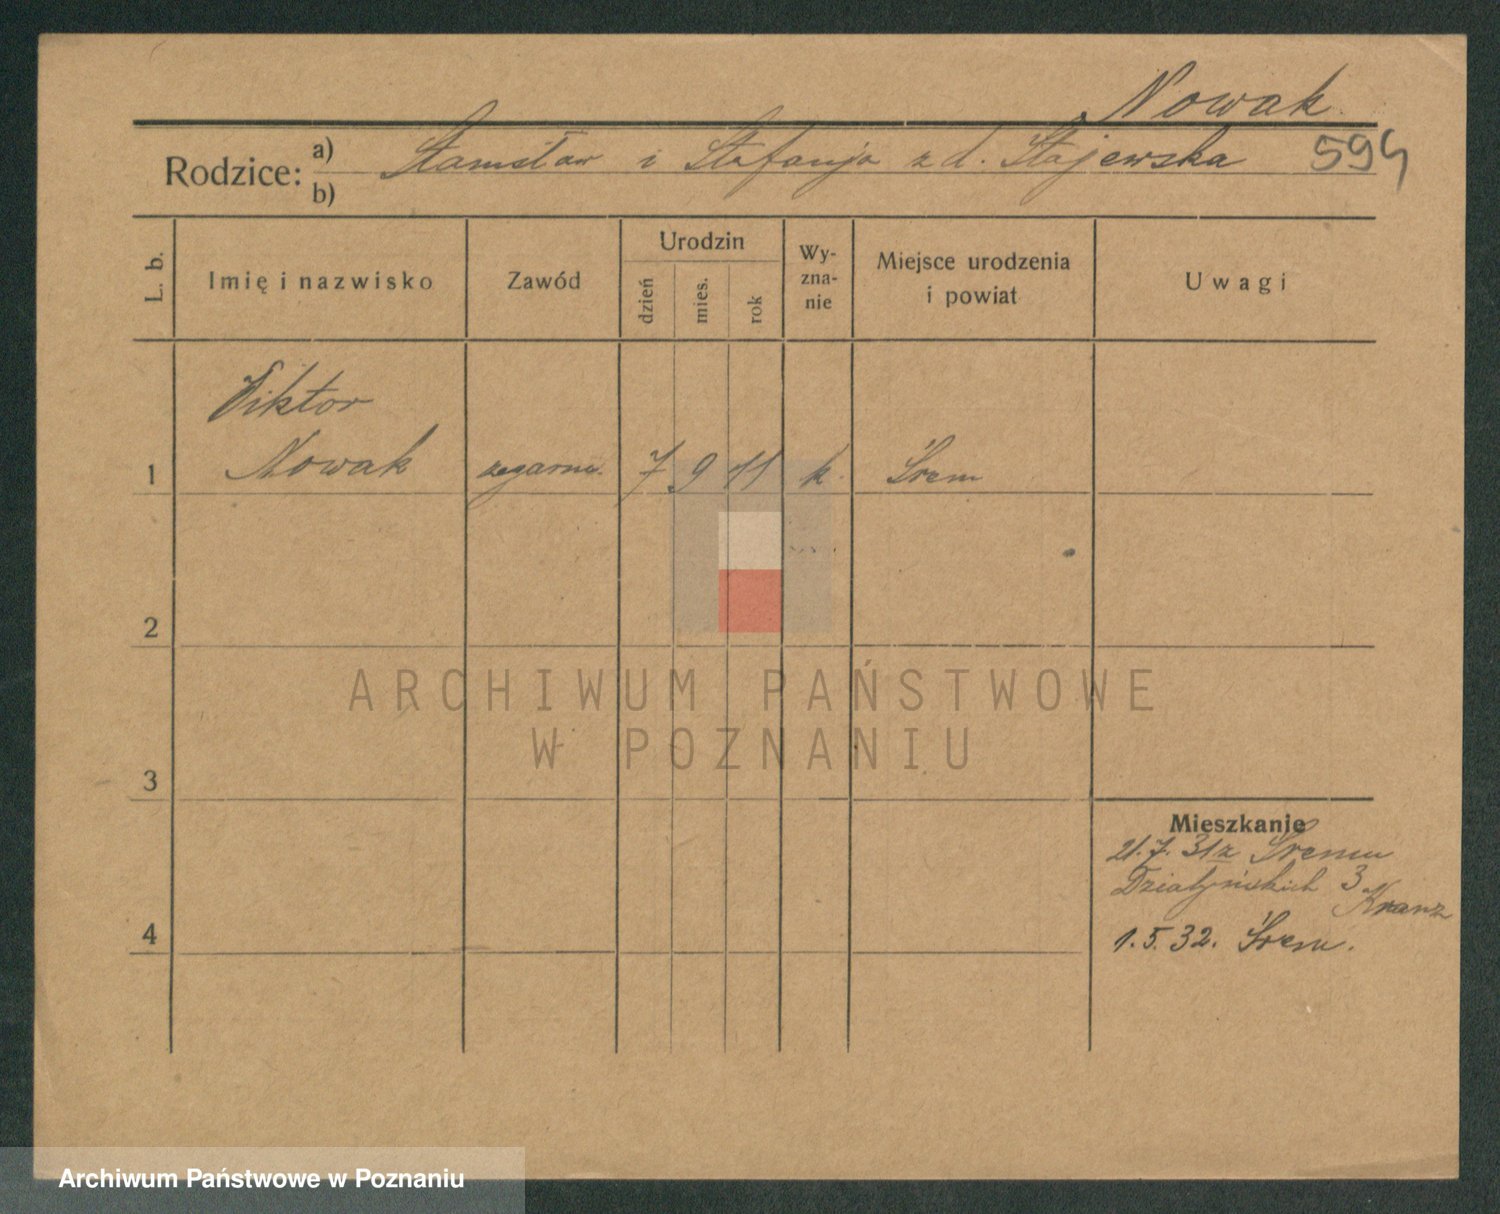 Nowak
594
Rodzice: a) Stanisław i Stefanja z d. Stajewska
b)
L. b.
Imię i nazwisko
Zawód
Urodzin
dzień
mies.
rok
Wy-
zna-
nie
Miejsce urodzenia
i powiat
Uwagi
Wiktor
1 Nowak zegarm. 7 9 11 k. Śrem
2
3
4
Mieszkanie
21.7.31 z Śremu
Działyńskich 3
Kranz
1.5.32. Śrem.
ARCHIWUM PAŃSTWOWE
W POZNANIU
Archiwum Państwowe w Poznaniu